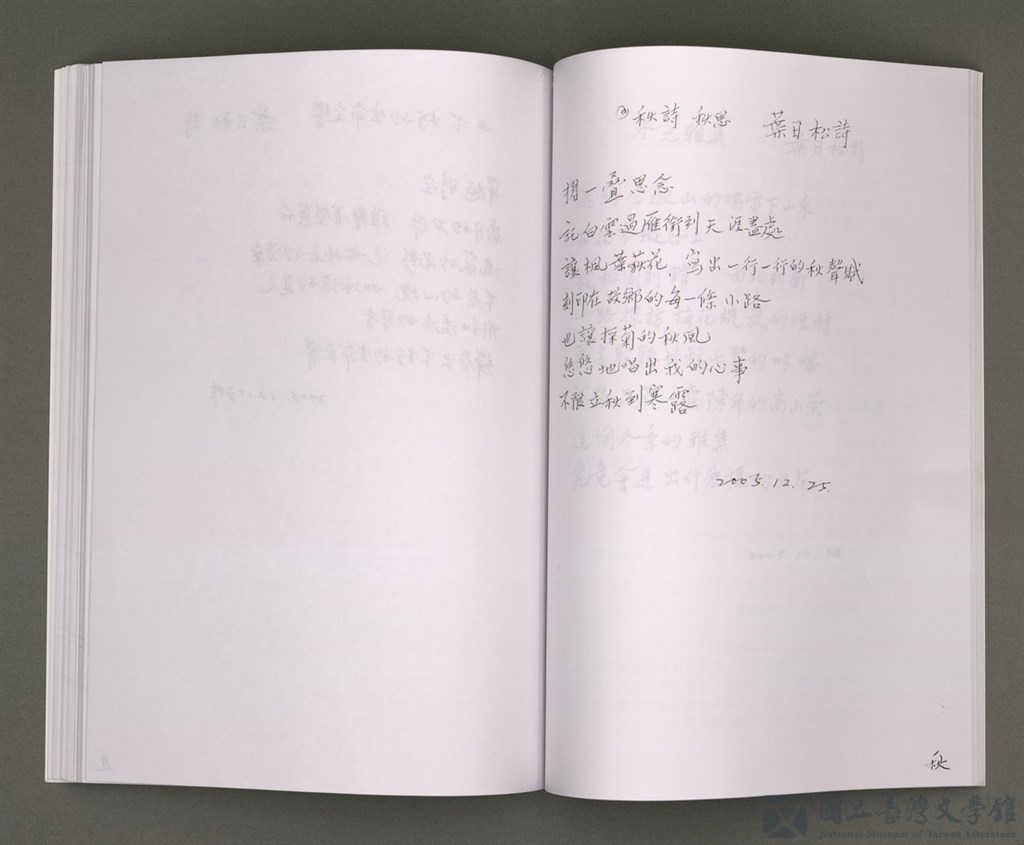 ③秋詩 秋思 葉日松詩
摺一疊思念
託白雲過雁銜到天涯盡處
讓楓葉荻花 寫出一行一行的秋聲賦
刻印在故鄉的每一條小路
也讓採菊的秋風
悠悠地唱出我的心事
不限立秋到寒露
2005.12.25.
秋
國立臺灣文學館
National Museum of Taiwan Literature